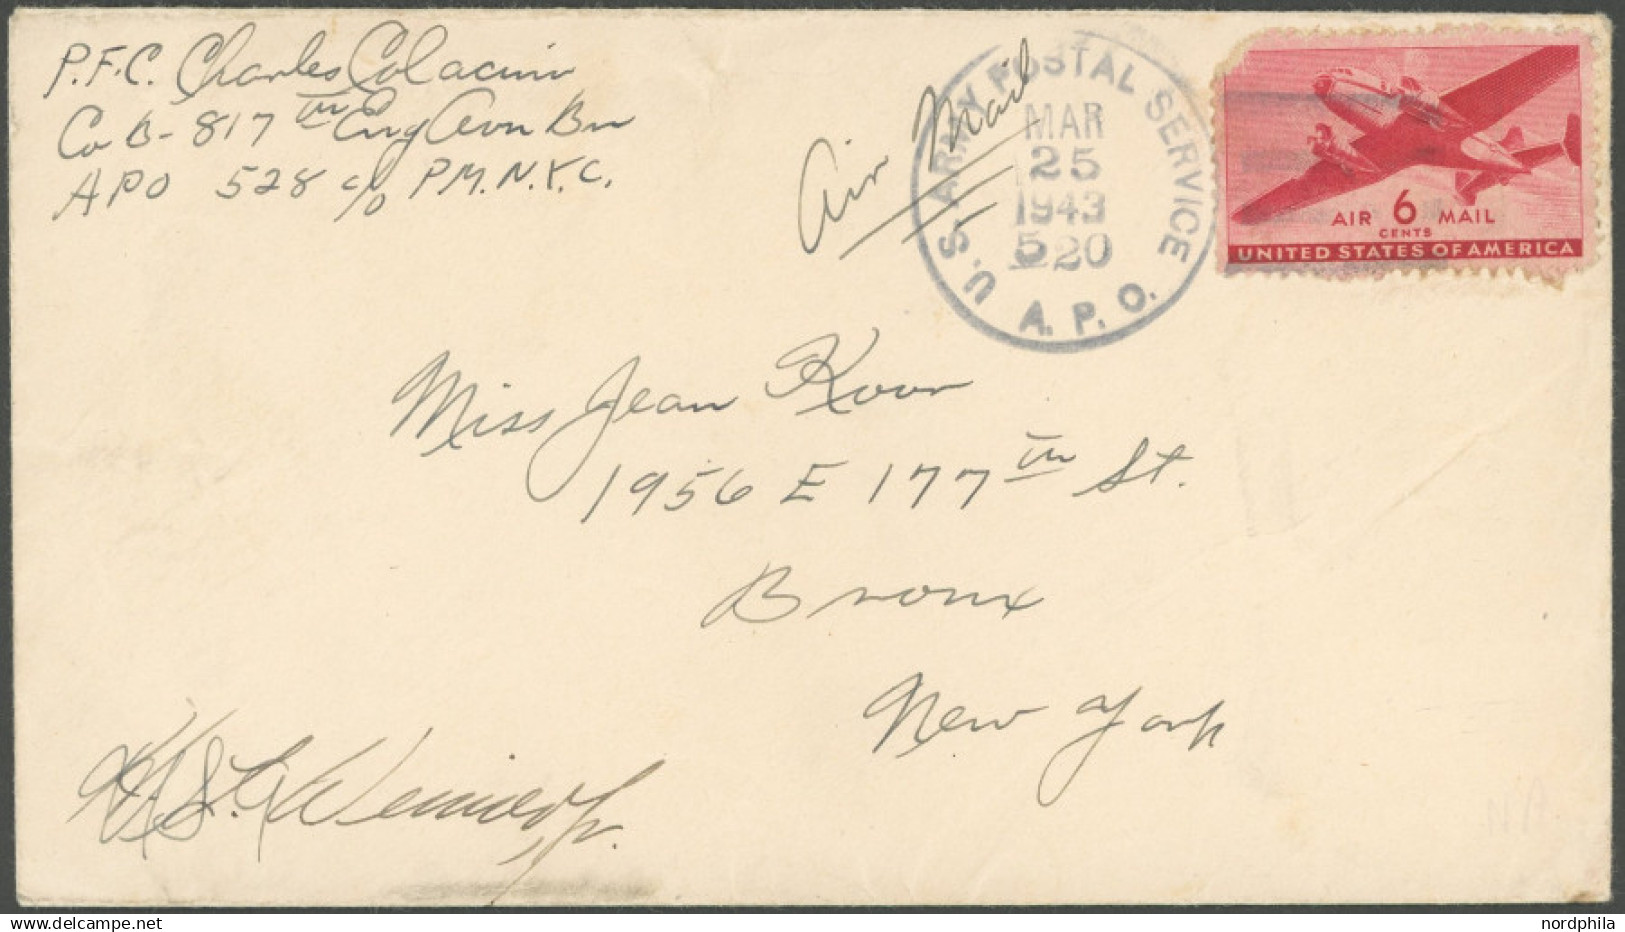 P.F.C. Charles Colacino
Co B - 817th Eng Avn Bn
APO 528 c/o P.M.N.Y.C.
Air Mail
U.S. ARMY POSTAL SERVICE
MAR
25
1943
520
A.P.O.
AIR 6 MAIL
CENTS
UNITED STATES OF AMERICA
Miss Jean
1956 E 177th St.
Bronx
New York
Jr.
delcampe.net
nordphila